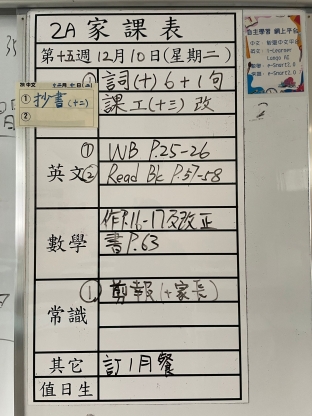 2A 家課表
第十五週12月10日(星期二)
① 詞(十) 6+1句
課工(十三) 改
① 抄書(十二)
②
英文
① WB P.25-26
② Read Bk P.57-58
數學
作P.16-17及改正
書P.63
常識
① 剪報(+家長)
其它
訂1月餐
值日生
自主學習 網上平台